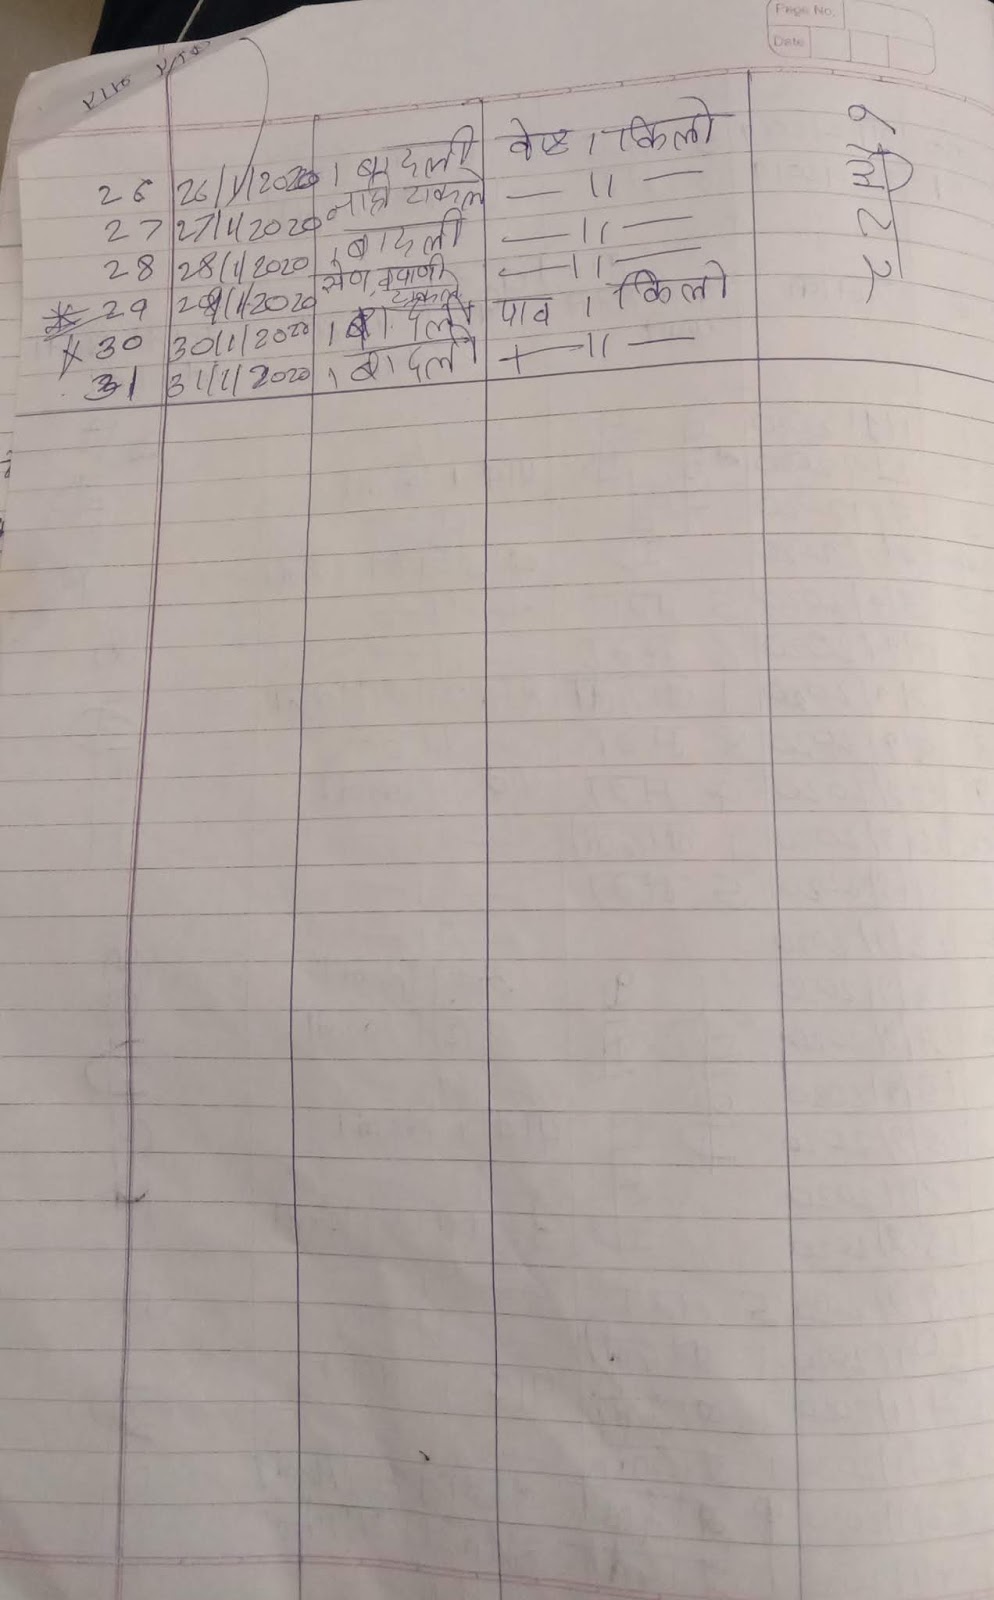 Page No.
Date
26 26/1/2020 1 बादली वेस्ट 1 किलो
27 27/1/2020 नाही टाकले — 11 —
28 28/1/2020 1 बादली — 11 —
29 29/1/2020 शेण व पाणी टाकले — 11 —
30 30/1/2020 1 बादली पाव 1 किलो
31 31/1/2020 1 बादली — 11 —